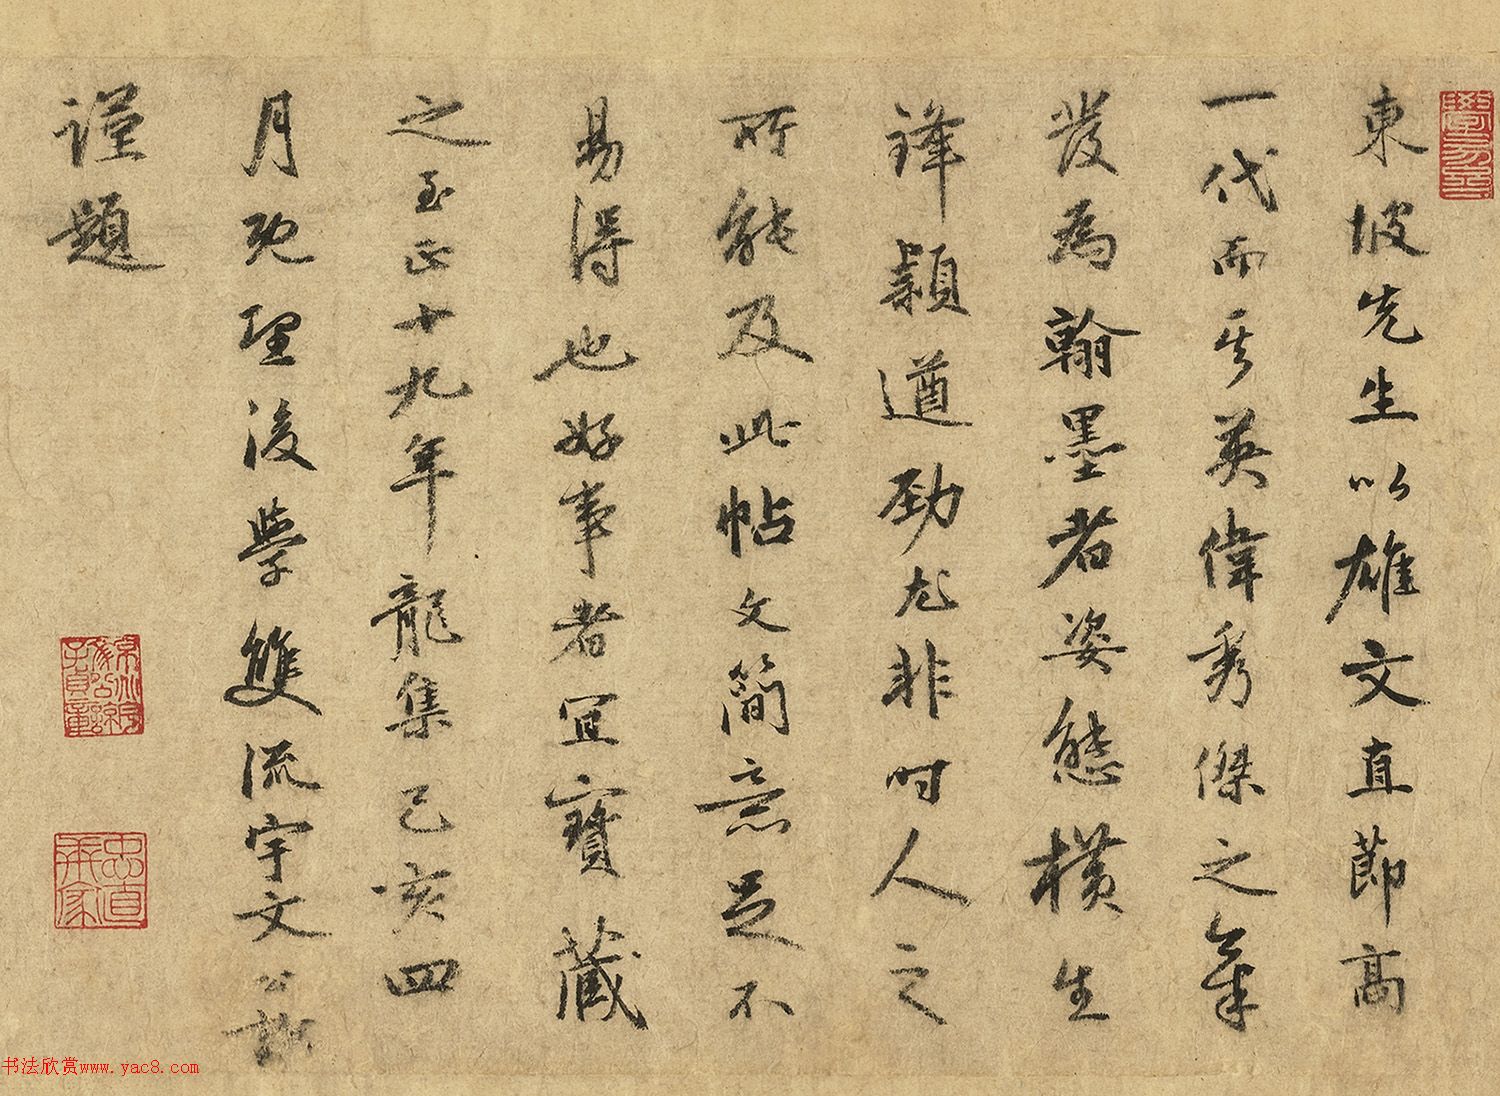 東坡先生以雄文直節高
一代而其英偉秀傑之氣
發爲翰墨者姿態橫生
鋒穎遒勁尤非時人之
所能及此帖文簡意足不
易得也好事者宜寶藏
之至正十九年龍集己亥四
月既望後學雙流宇文公諒
謹題
忠直弄家
书法欣赏www.yac8.com